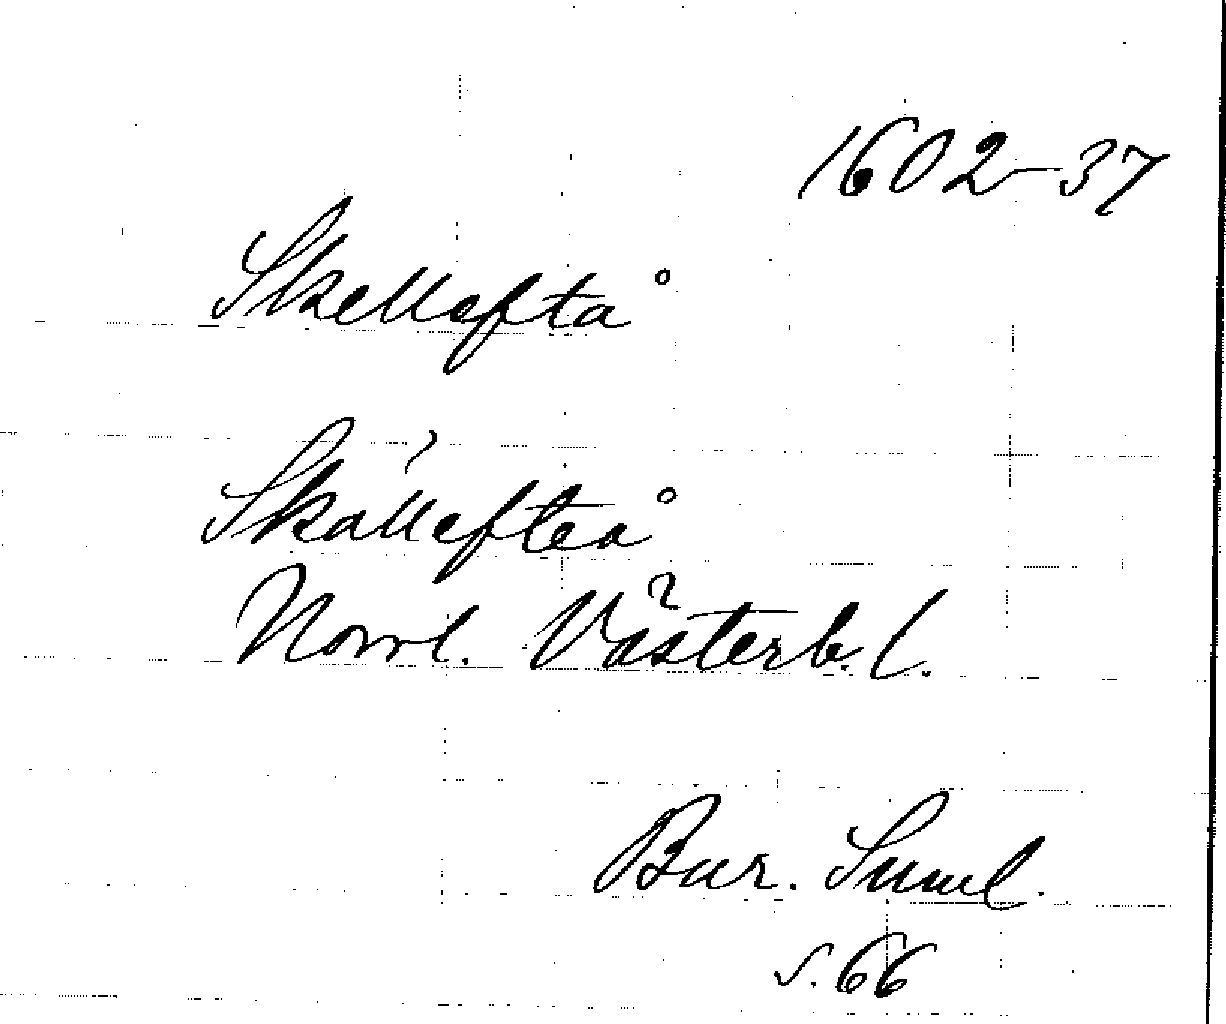 1602-37
Skelleftå
Skällefteå
Norrl. Västerb. l.
Bur. Suml.
s. 66